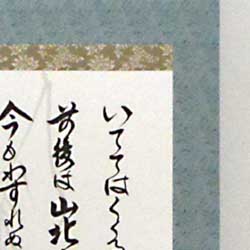 いててはくる
前後は山北
今もわすれぬ